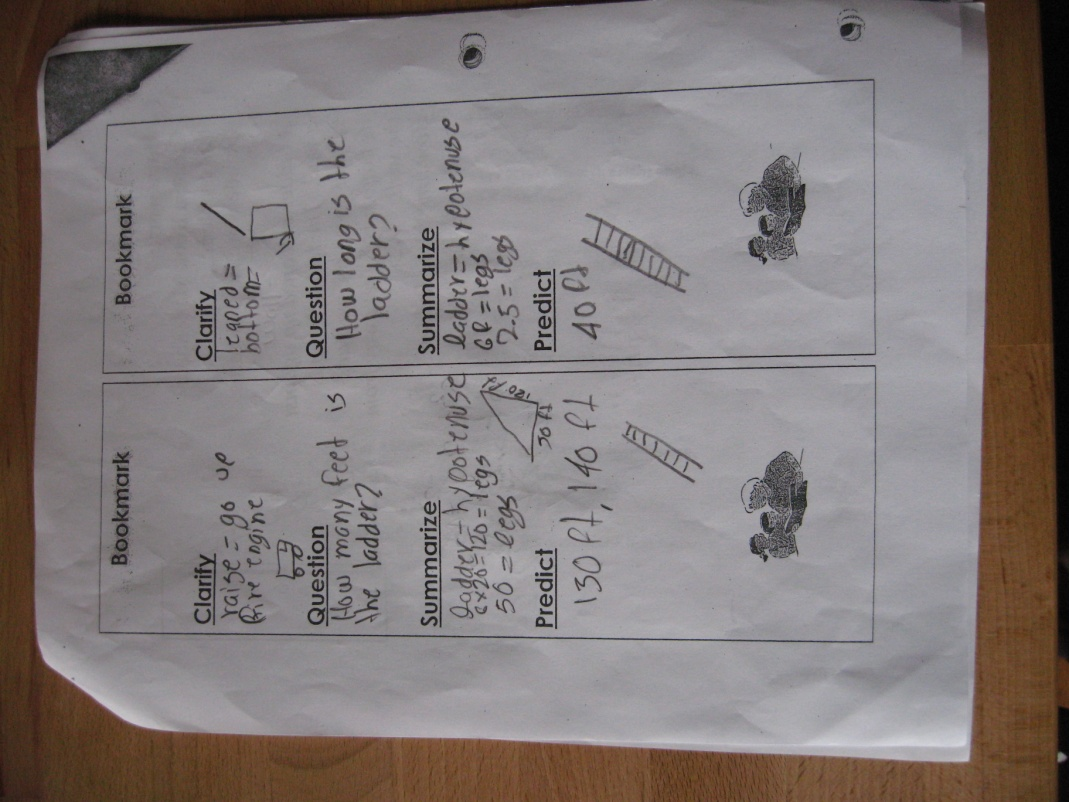 Bookmark
Clarify
raise = go up
fire engine
Question
How many feet is
the ladder?
Summarize
ladder = hypotenuse
6x20=120 = legs
50 = legs
120
50 ft
Predict
130 ft, 140 ft
Bookmark
Clarify
leaned =
bottom =
Question
How long is the
ladder?
Summarize
ladder = hypotenuse
6 ft = legs
2.5 = legs
Predict
40 ft